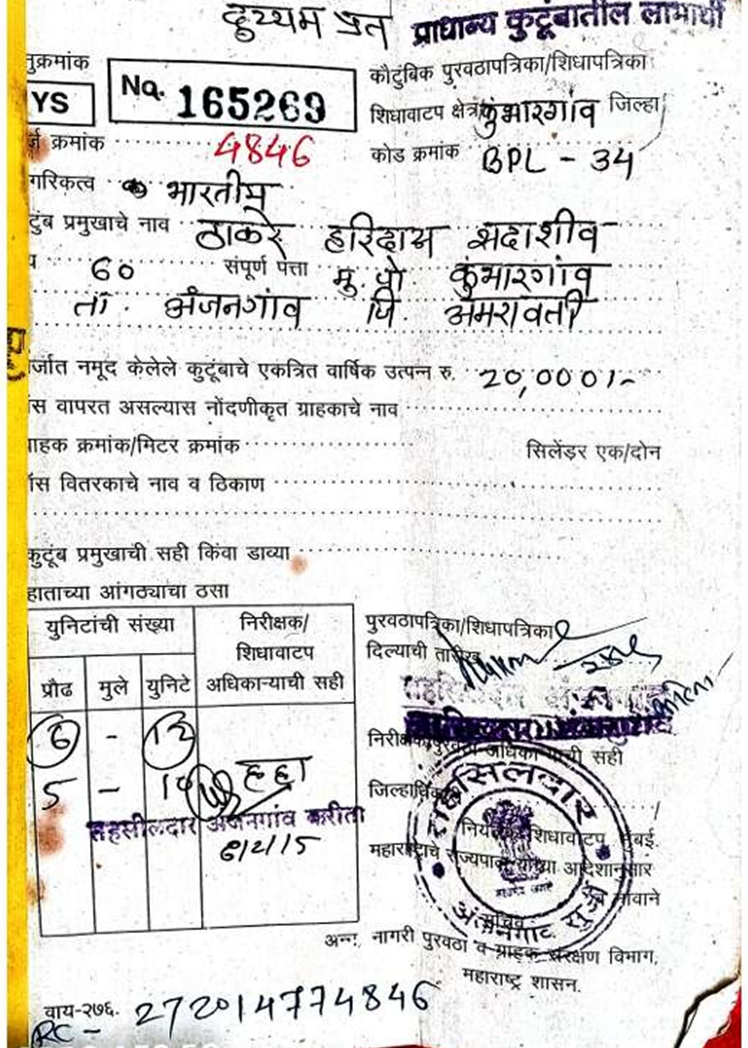 दुय्यम प्रत प्राधान्य कुटूंबातील लाभार्थी
नुक्रमांक
YS No. 165269
कौटुंबिक पुरवठापत्रिका/शिधापत्रिका
शिधावाटप क्षेत्र कुंभारगांव जिल्हा
र्ज क्रमांक 4846
कोड क्रमांक BPL - 34
गरिकत्व भारतीय
टुंब प्रमुखाचे नाव ठाकरे हरिदास सदाशीव
य 60 संपूर्ण पत्ता मु. पो कुंभारगांव
ता. अंजनगांव जि. अमरावती
र्जात नमूद केलेले कुटूंबाचे एकत्रित वार्षिक उत्पन्न रु. 20,000/-
स वापरत असल्यास नोंदणीकृत ग्राहकाचे नाव
ाहक क्रमांक/मिटर क्रमांक सिलेंडर एक/दोन
ॅस वितरकाचे नाव व ठिकाण
कुटूंब प्रमुखाची सही किंवा डाव्या
हाताच्या आंगठ्याचा ठसा
युनिटांची संख्या निरीक्षक/
शिधावाटप
अधिकाऱ्याची सही
प्रौढ मुले युनिटे
6 - 12
5 - 10
तहसीलदार अंजनगांव करीता
6/2/15
पुरवठापत्रिका/शिधापत्रिका
दिल्याची तारीख
निरीक्षक/पुरवठा अधिकाऱ्याची सही
जिल्हाधिकारी
तहसिलदार
नियंत्रक शिधावाटप, मुंबई.
महाराष्ट्राचे राज्यपाल यांच्या आदेशानुसार
व नावाने
सचिव
अंजनगाव सुर्जी
अन्न, नागरी पुरवठा व ग्राहक संरक्षण विभाग,
महाराष्ट्र शासन.
वाय-२७६.
RC - 272014774846